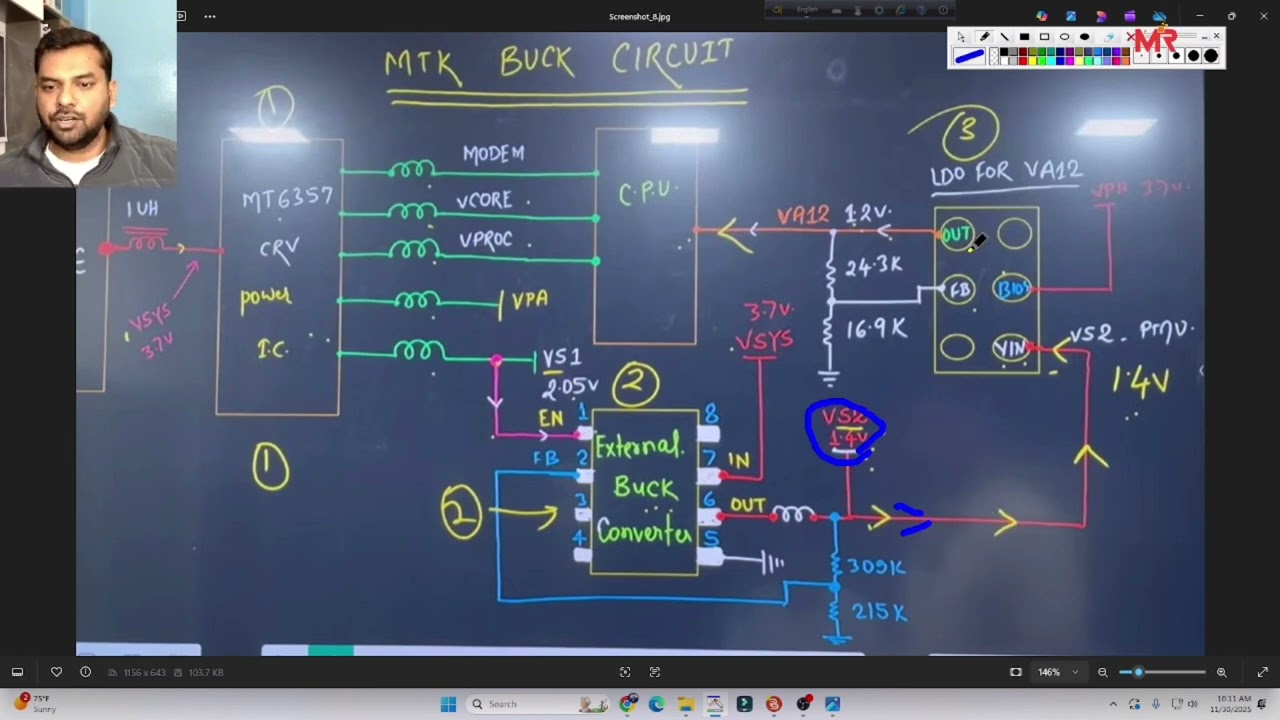 Screenshot_8.jpg
English
MR
MTK BUCK CIRCUIT
1
3
LDO FOR VA12
MODEM
VCORE
VPROC
VPA
VS1
2.05V
MT6357
CRV
power
I.C.
1
1UH
VSYS
3.7V
C.P.U.
VA12 1.2V.
24.3K
16.9K
OUT
FB
BIOS
VIN
VPH 3.7V.
VS2
1.4V
3.7V.
VSYS
2
EN
FB
1
2
3
4
8
7
6
5
IN
OUT
External.
BUCK
Converter
2
VS2
1.4V
309K
215K
1156 x 643
103.7 KB
146%
2
75°F
Sunny
Search
10:11 AM
11/30/2025